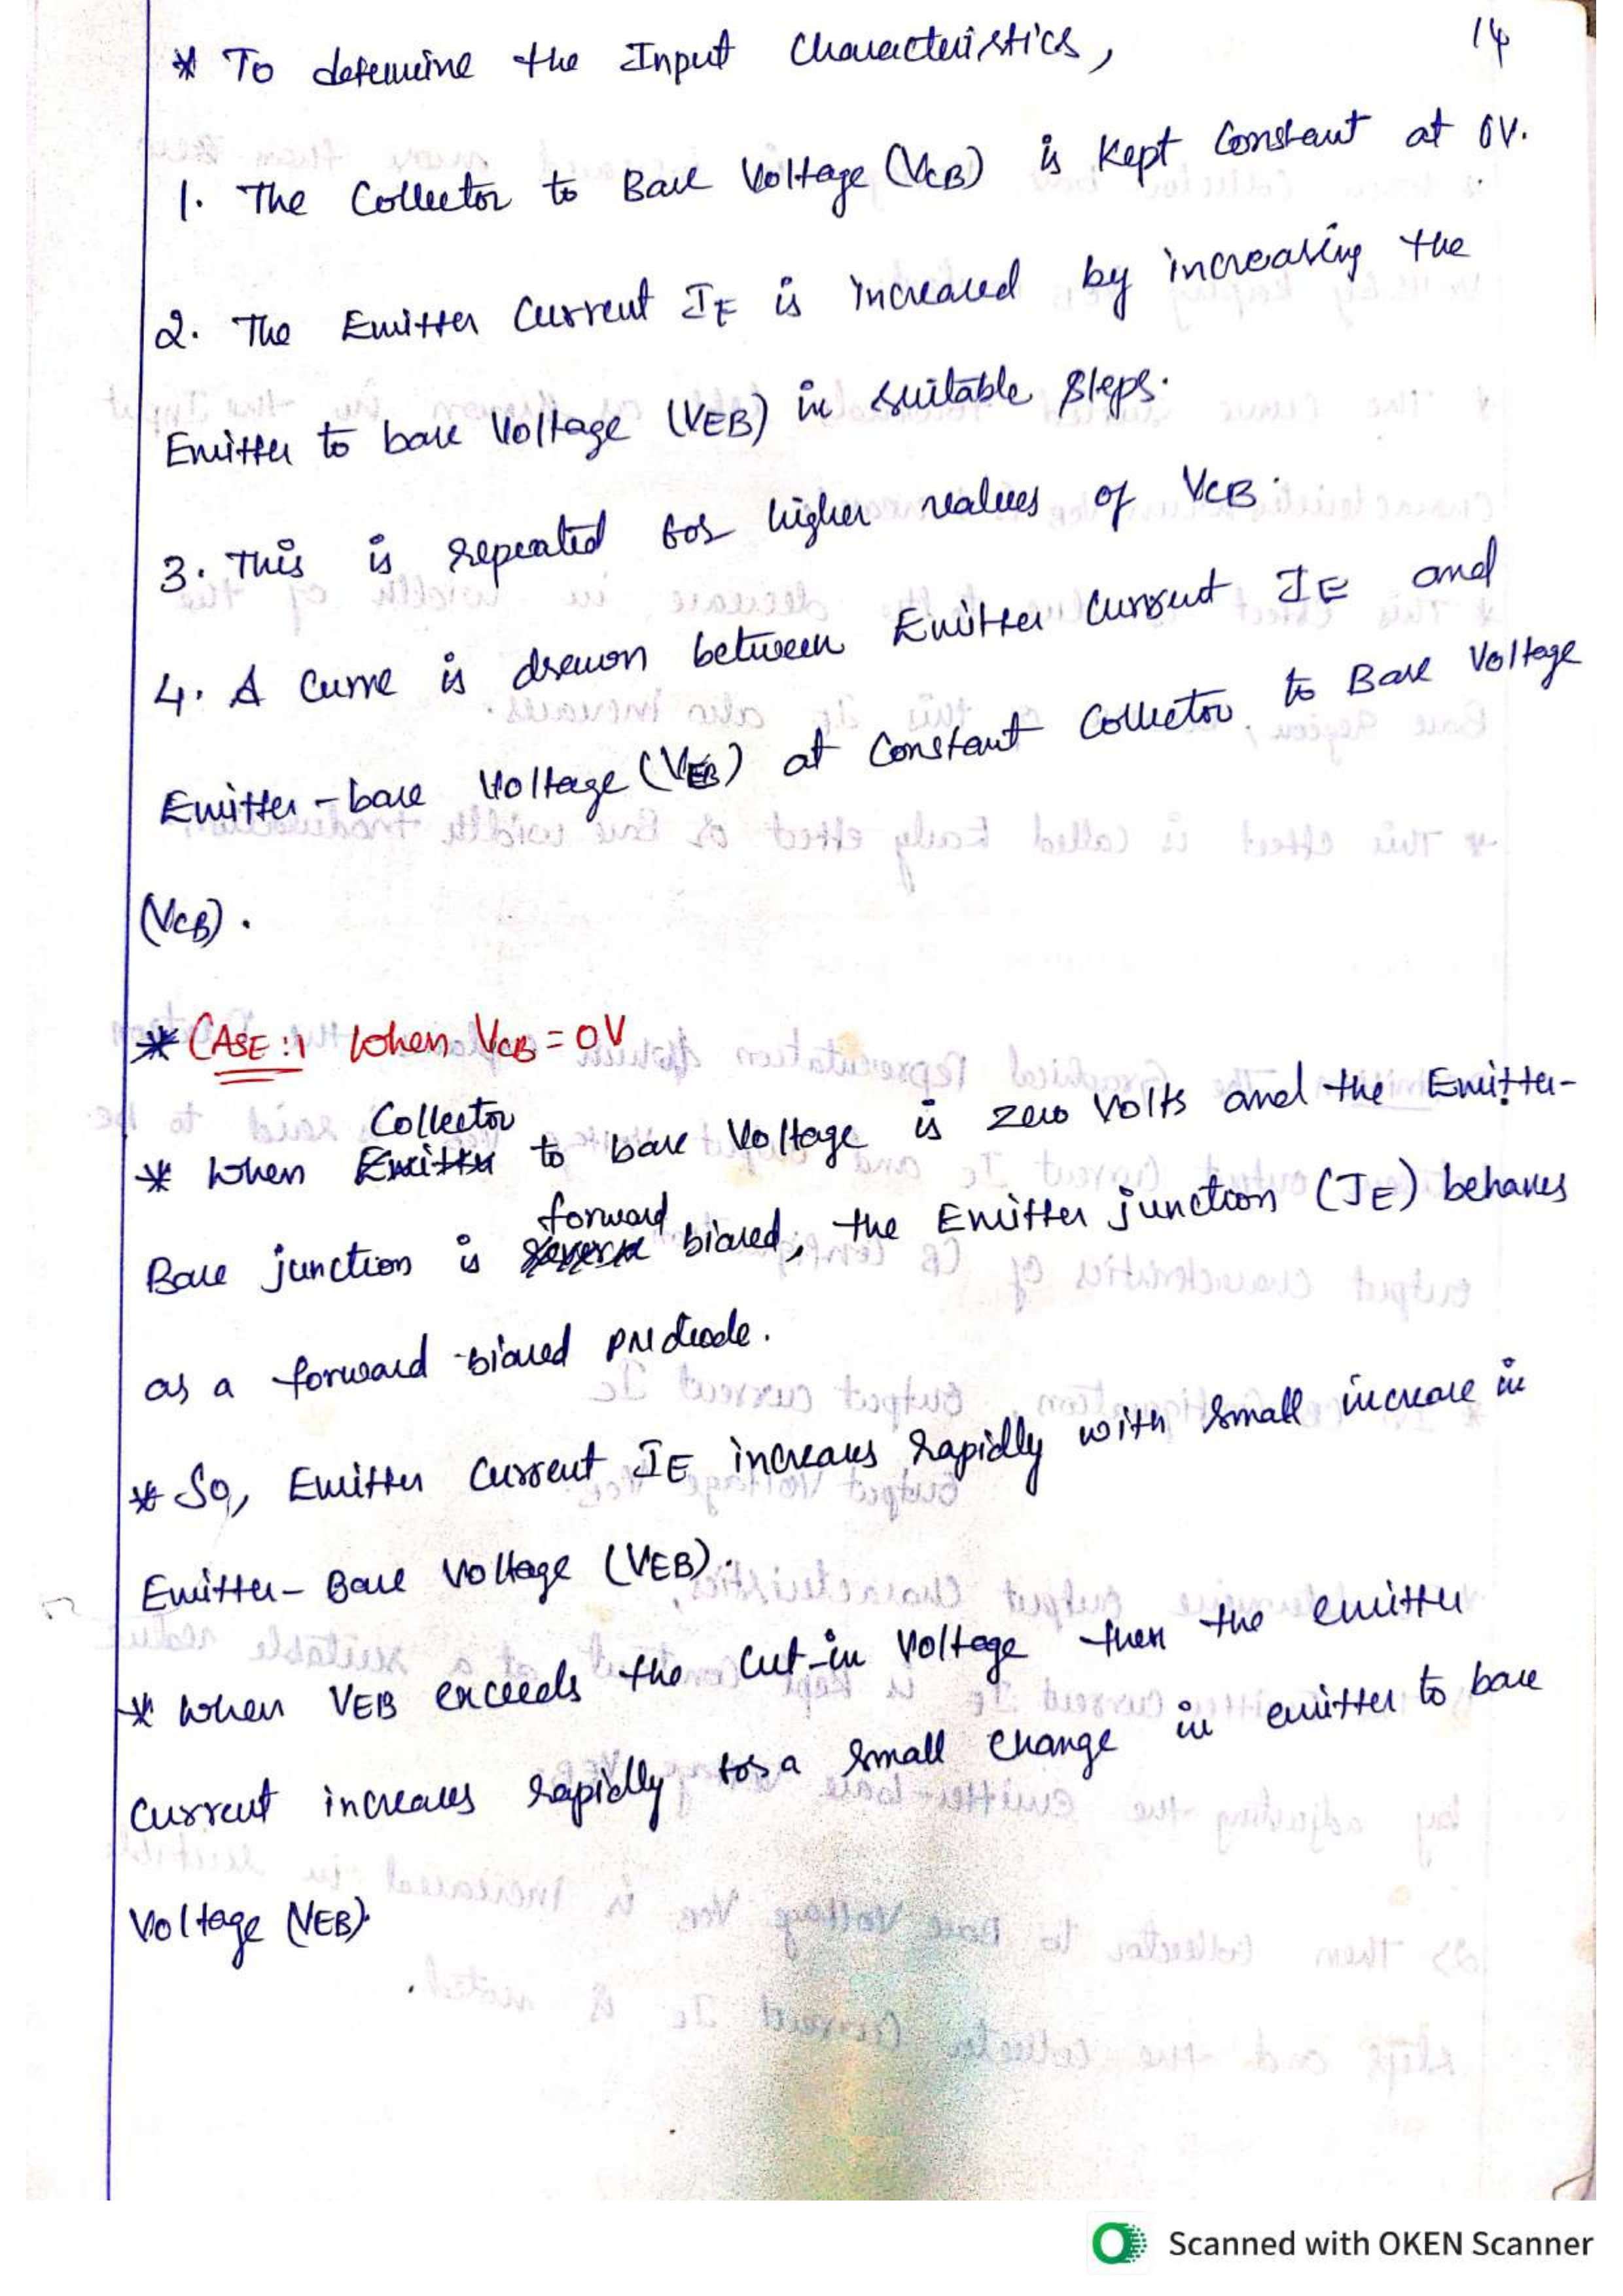 14
* To determine the Input Characteristics,
1. The Collector to Base Voltage (VCB) is kept constant at 0V.
2. The Emitter Current IE is increased by increasing the
Emitter to base Voltage (VEB) in suitable steps.
3. This is repeated for higher values of VCB.
4. A Curve is drawn between Emitter Current IE and
Emitter-base Voltage (VEB) at Constant Collector to Base Voltage
(VCB).
* CASE:1 When VCB = 0V
* When Collector to base Voltage is zero Volts and the Emitter-
Base junction is forward biased, the Emitter junction (JE) behaves
as a forward-biased PN diode.
* So, Emitter Current IE increases rapidly with small increase in
Emitter-Base Voltage (VEB).
* When VEB exceeds the cut-in Voltage then the emitter
Current increases rapidly for a small change in emitter to base
Voltage (VEB).
Scanned with OKEN Scanner